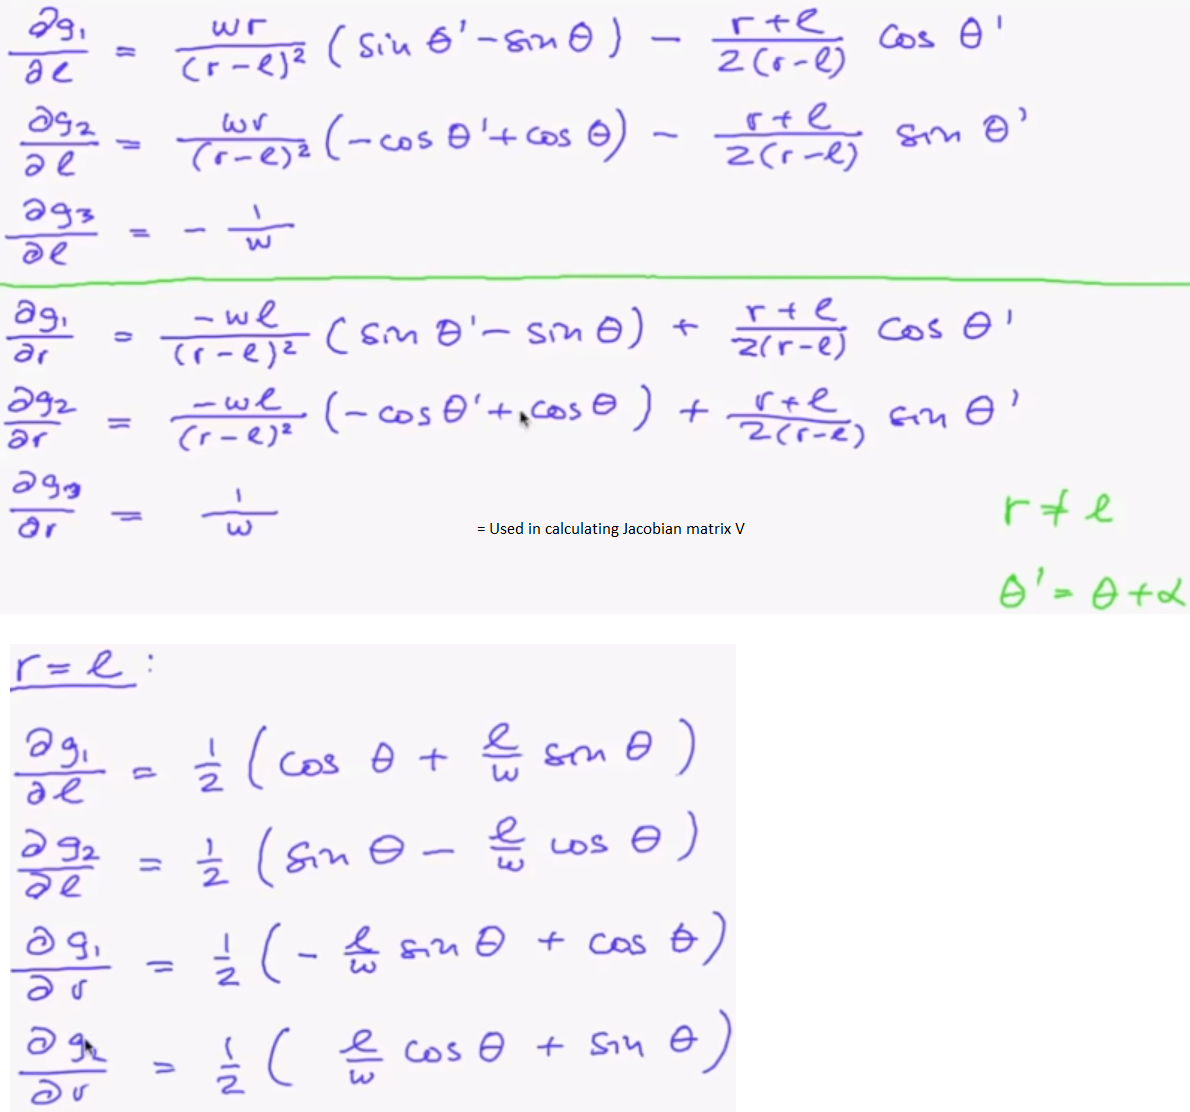 ∂g₁/∂l = wr/(r-l)² (sin θ' - sin θ) - r+l/2(r-l) cos θ'
∂g₂/∂l = wr/(r-l)² (-cos θ' + cos θ) - r+l/2(r-l) sin θ'
∂g₃/∂l = - 1/w
∂g₁/∂r = -wl/(r-l)² (sin θ' - sin θ) + r+l/2(r-l) cos θ'
∂g₂/∂r = -wl/(r-l)² (-cos θ' + cos θ) + r+l/2(r-l) sin θ'
∂g₃/∂r = 1/w
r ≠ l
= Used in calculating Jacobian matrix V
θ' = θ + α
r = l :
∂g₁/∂l = 1/2 (cos θ + l/w sin θ)
∂g₂/∂l = 1/2 (sin θ - l/w cos θ)
∂g₁/∂r = 1/2 (- l/w sin θ + cos θ)
∂g₂/∂r = 1/2 ( l/w cos θ + sin θ)